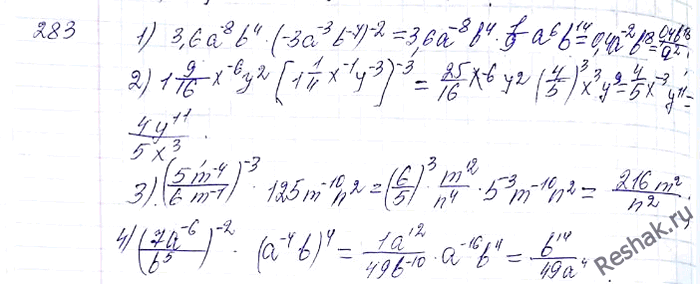 283
1) 3,6a⁻⁸b⁴ · (-3a⁻³b⁻⁷)⁻² = 3,6a⁻⁸b⁴ · 1/9 a⁶b¹⁴ = 0,4a⁻²b¹⁸ = 0,4b¹⁸/a²;
2) 1 9/16 x⁻⁶y² (1 1/4 x⁻¹y⁻³)⁻³ = 25/16 x⁻⁶y² (4/5)³ x³y⁹ = 4/5 x⁻³y¹¹ =
4y¹¹/5x³.
3) (5m⁻⁴/6m⁻¹)⁻³ · 125m⁻¹⁰n² = (6/5)³ m¹²/n⁴ · 5⁻³m⁻¹⁰n² = 216m²/n²;
4) (7a⁻⁶/b⁵)⁻² · (a⁻⁴b)⁴ = 1a¹²/49b⁻¹⁰ · a⁻¹⁶b⁴ = b¹⁴/49a⁴.
Reshak.ru